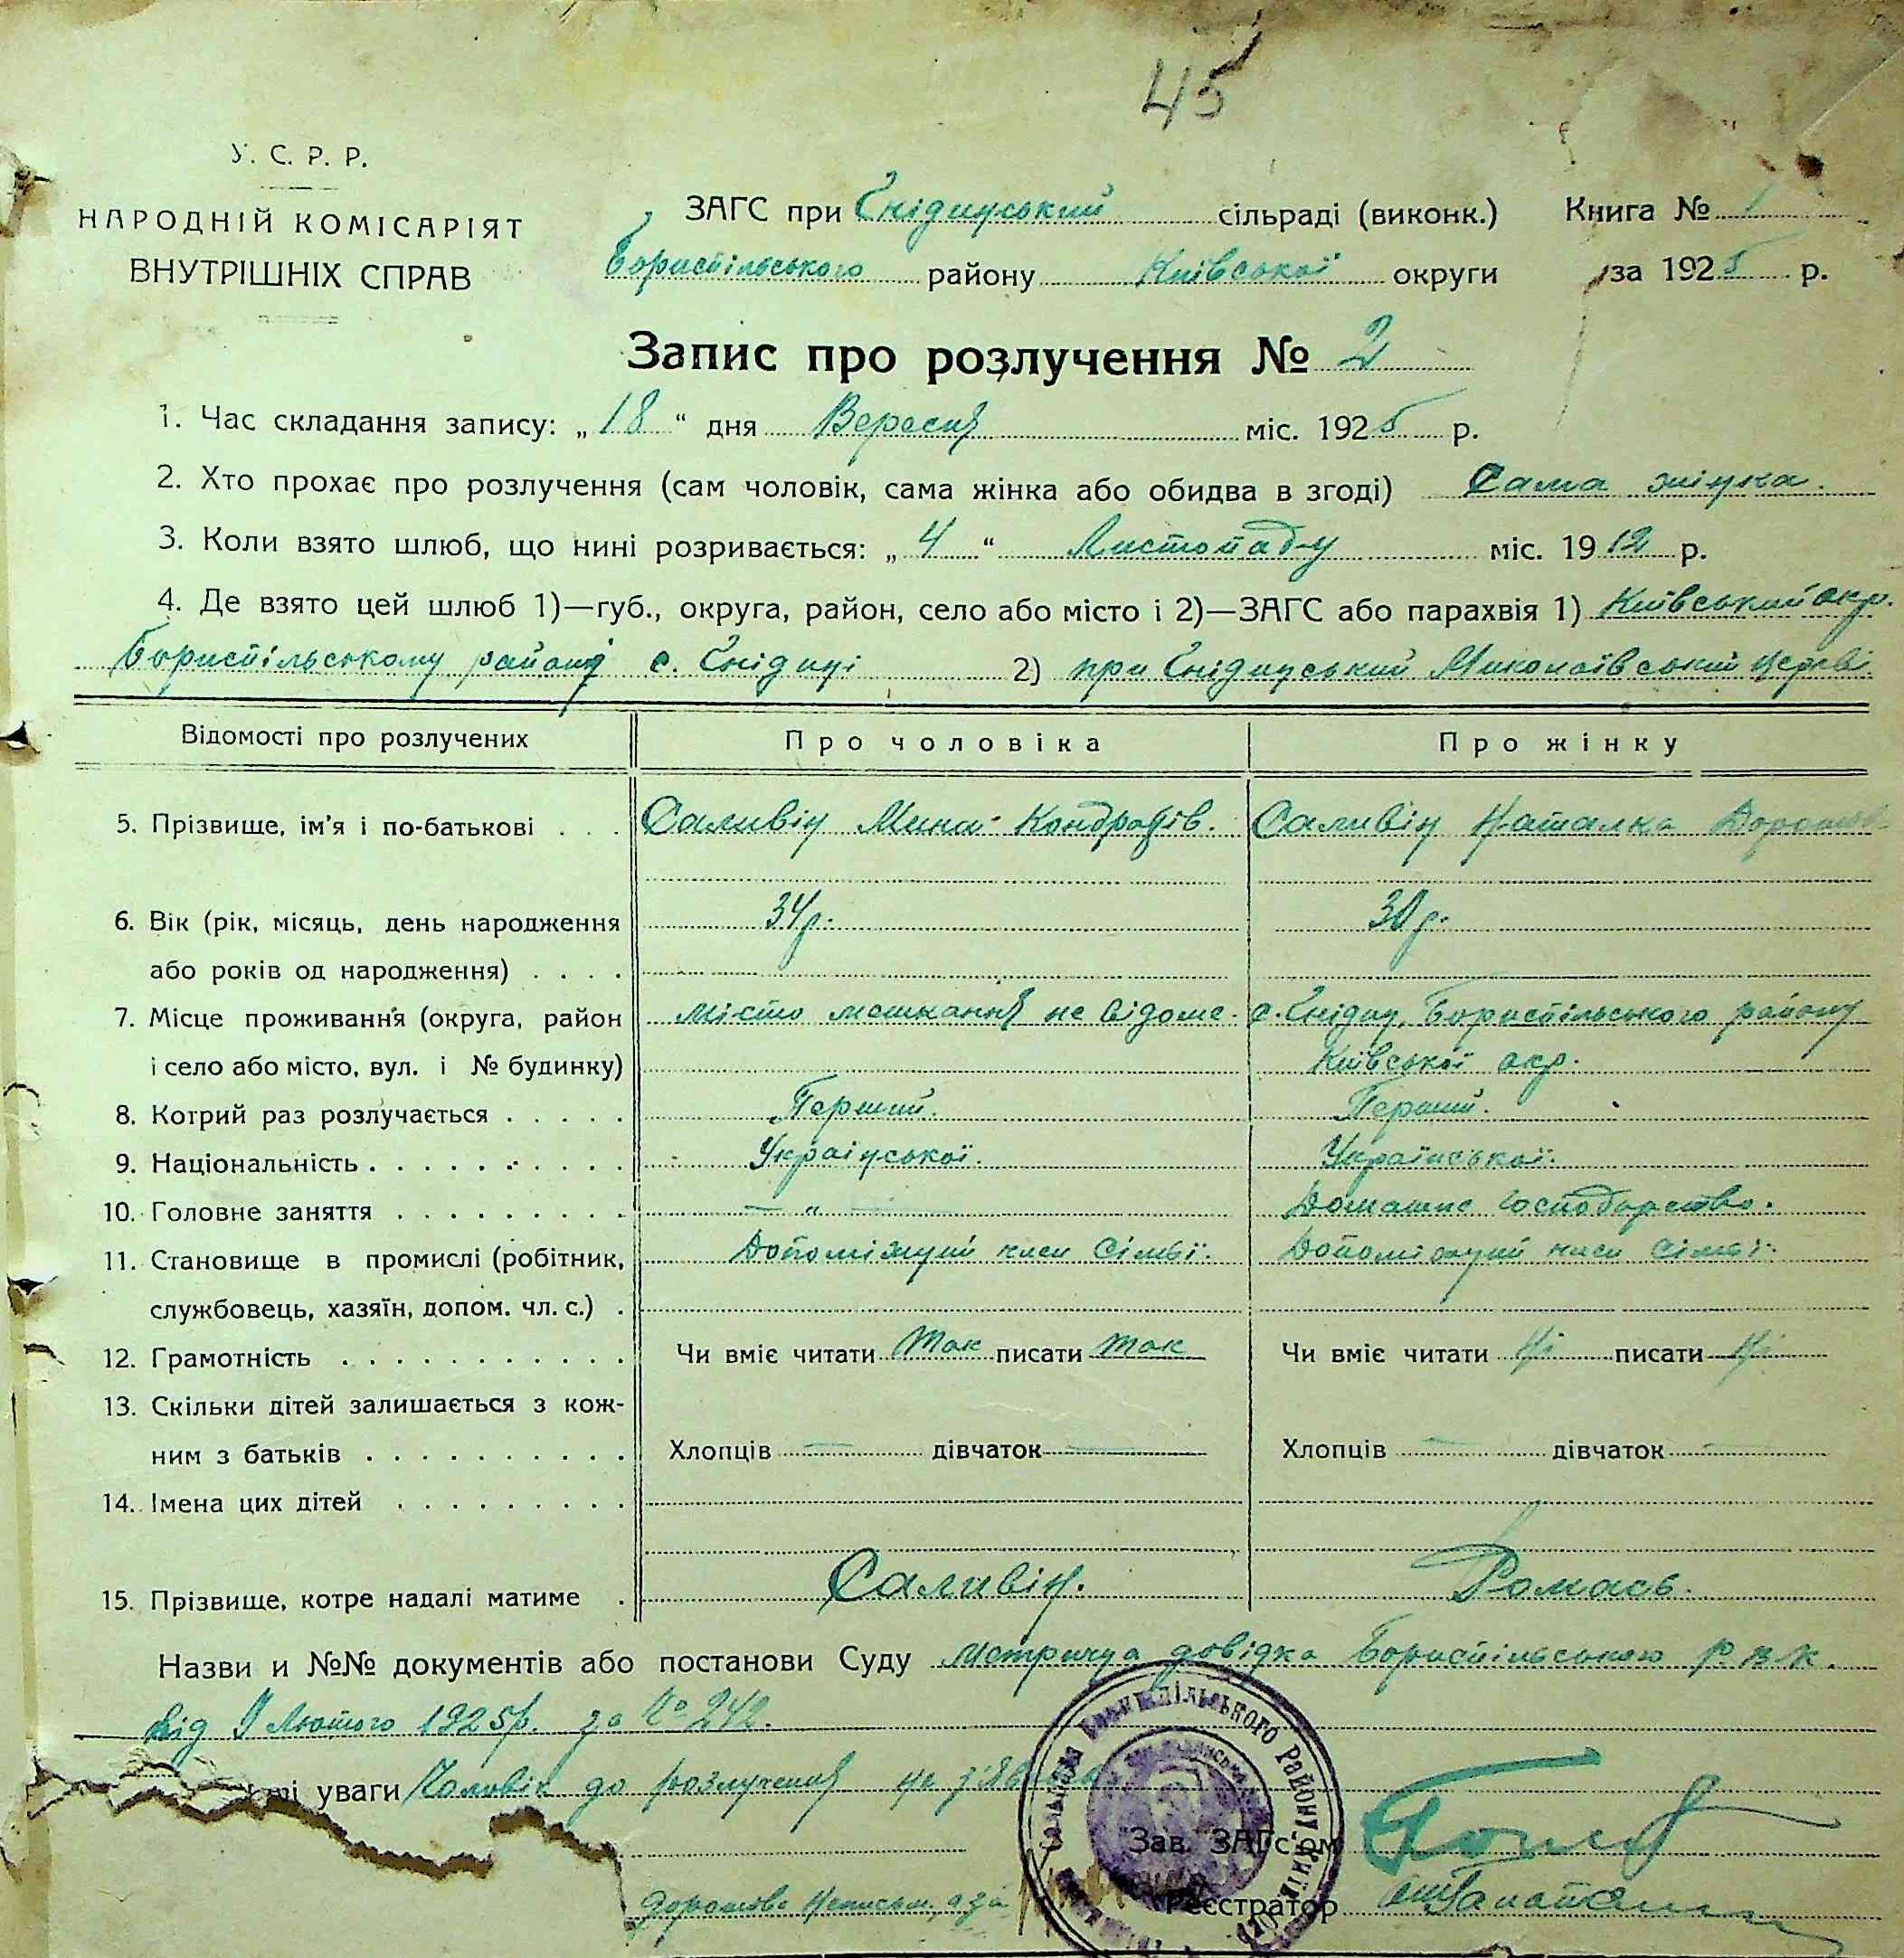 45
У. С. Р. Р.
НАРОДНІЙ КОМІСАРІЯТ
ВНУТРІШНІХ СПРАВ
ЗАГС при Гнідинський сільраді (виконк.) Книга № 1
Бориспільського району Київської округи за 1925 р.
Запис про розлучення № 2
1. Час складання запису: „18“ дня Вересня міс. 1925 р.
2. Хто прохає про розлучення (сам чоловік, сама жінка або обидва в згоді) Сама жінка.
3. Коли взято шлюб, що нині розривається: „4“ Листопаду міс. 1912 р.
4. Де взято цей шлюб 1)—губ., округа, район, село або місто і 2)—ЗАГС або парахвія 1) Київський окр.
Бориспільському району с. Гнідині 2) при Гнідинський Миколаївський церкві.
Відомості про розлучених Про чоловіка Про жінку
5. Прізвище, ім'я і по-батькові . . . Саливін Мина Кондратів. Саливін Наталка
6. Вік (рік, місяць, день народження 34 р. 30 р.
або років од народження) . . . .
7. Місце проживання (округа, район місто мешкання не відоме. с. Гнідин, Бориспільського району
і село або місто, вул. і № будинку) Київської окр.
8. Котрий раз розлучається . . . . . Перший. Перший.
9. Національність . . . . . . . . . Української. Української.
10. Головне заняття . . . . . . . . . — „ — Домашнє господарство.
11. Становище в промислі (робітник, Допоміжний член сімьї. Допоміжний член сімьї.
службовець, хазяїн, допом. чл. с.) .
12. Грамотність . . . . . . . . . . . Чи вміє читати так писати так Чи вміє читати Ні писати Ні
13. Скільки дітей залишається з кож-
ним з батьків . . . . . . . . . . Хлопців — дівчаток — Хлопців — дівчаток —
14. Імена цих дітей . . . . . . . . .
15. Прізвище, котре надалі матиме . Саливін. Ромась.
Назви и №№ документів або постанови Суду Метрична довідка Бориспільского Р.В.К.
від 9 Лютого 1925р. за № 242.
уваги Чоловік до розлучення не з'явився
Зав. ЗАГс'ом
неписьм. за
Реєстратор